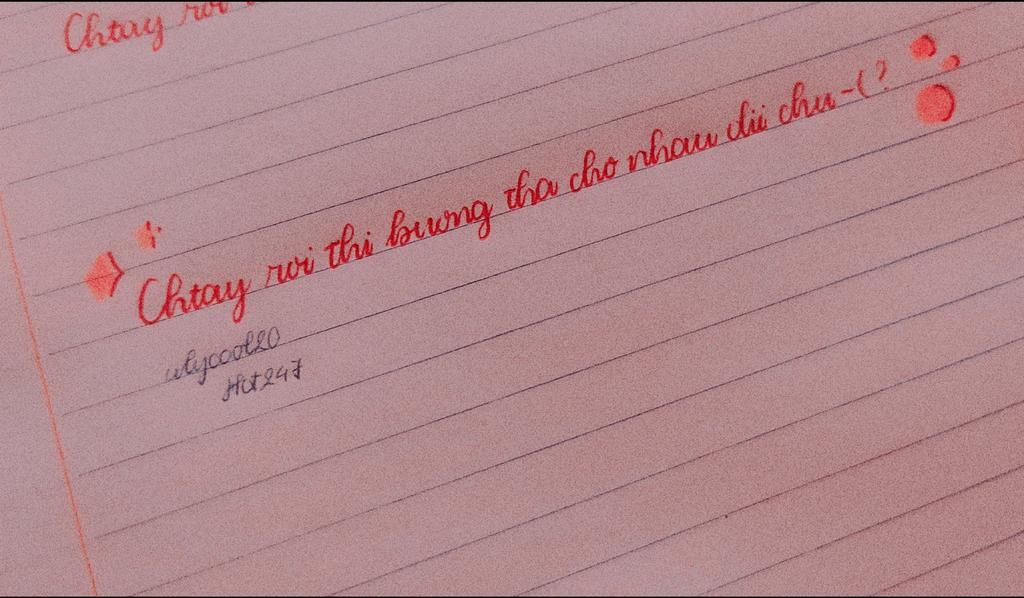 Chtay roi
Chtay roi thi buong tha cho nhau dii chu-(?
ulycool20
Hot247